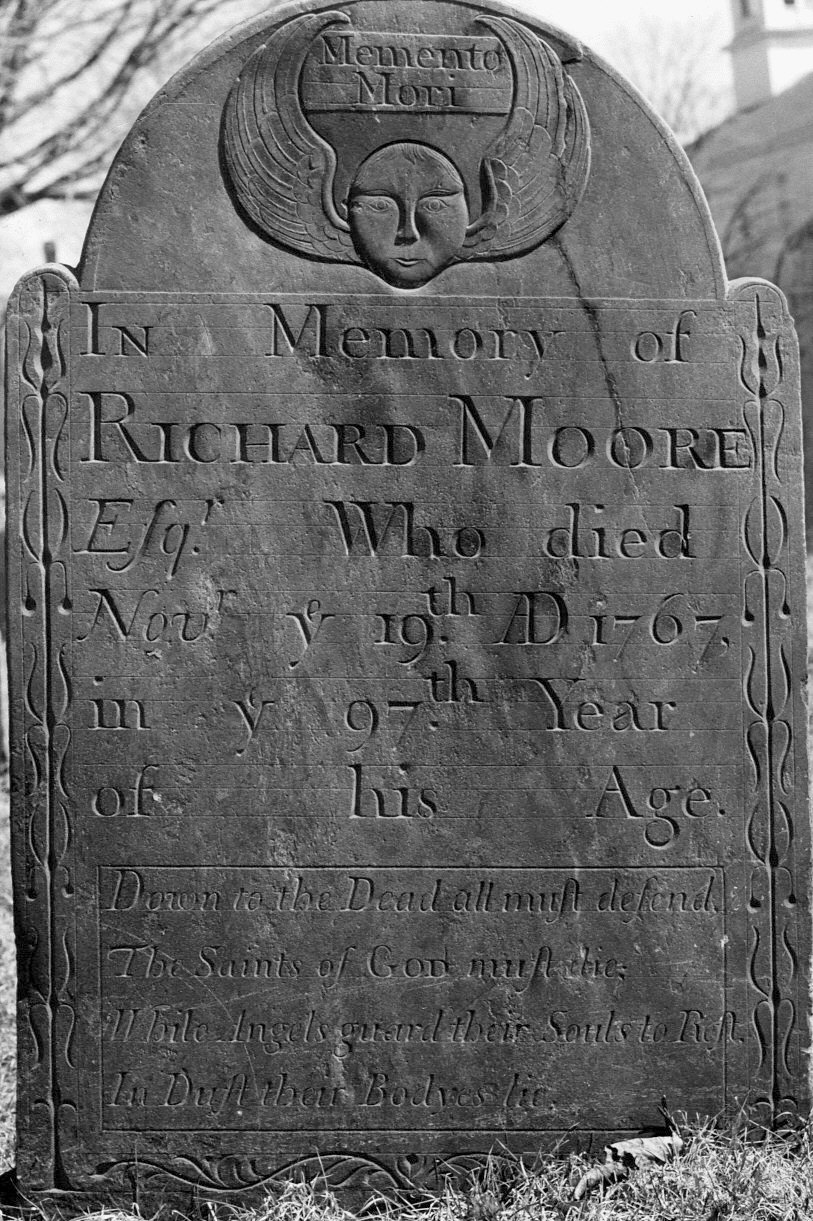 Memento
Mori
In Memory of
RICHARD MOORE
Eſqr. Who died
Novr ye 19.th AD 1767,
in y 97.th Year
of his Age.
Down to the Dead all muſt deſend,
The Saints of GOD muſt die;
While Angels guard their Souls to Reſt,
In Duſt their Bodyes lie.